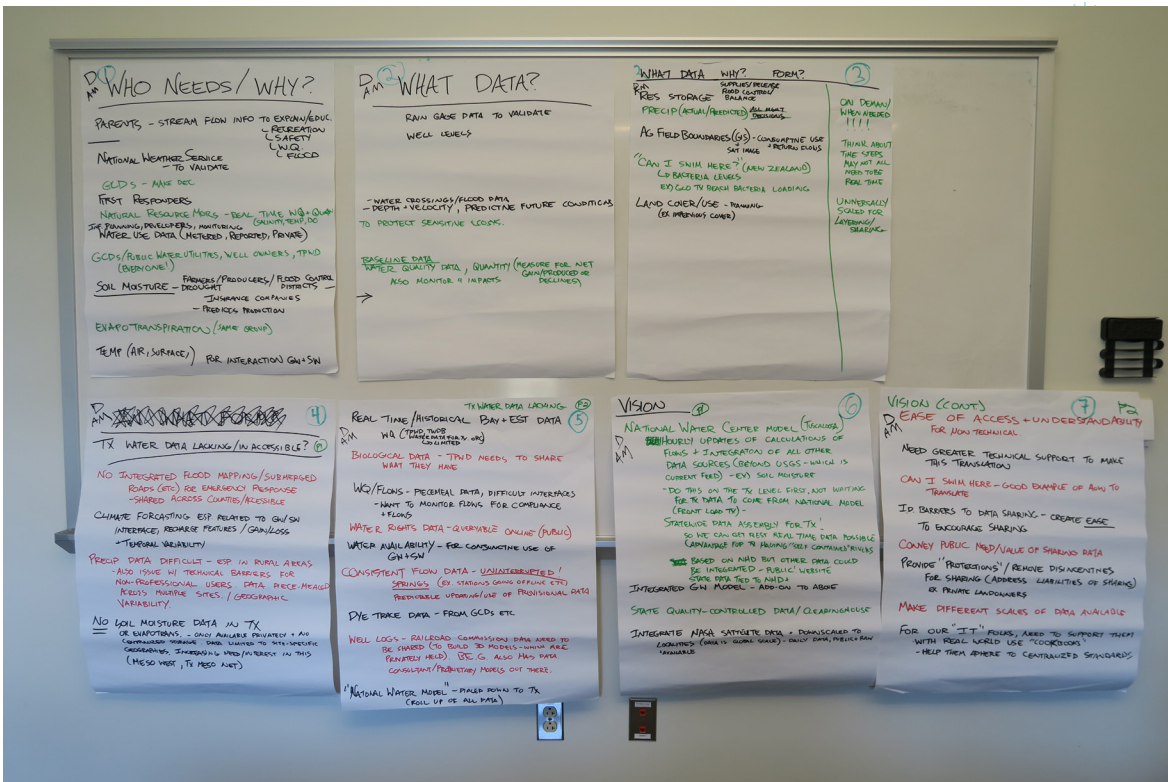 D AM
1
WHO NEEDS/WHY?
PARENTS - STREAM FLOW INFO TO EXPLAIN/EDUC
RECREATION
SAFETY
W.Q.
FLOOD
NATIONAL WEATHER SERVICE
- TO VALIDATE
GCDS - MAKE DEC
FIRST RESPONDERS
NATURAL RESOURCE MGRS - REAL TIME WQ +
SALINITY, TEMP, DO
PLANNING, DEVELOPERS, MONITORING
WATER USE DATA (METERED, REPORTED, PRIVATE)
GCDS/PUBLIC WATER UTILITIES, WELL OWNERS, TPWD
(EVERYONE!)
SOIL MOISTURE - FARMERS/PRODUCERS/FLOOD CONTROL
- DROUGHT DISTRICTS -
INSURANCE COMPANIES
- PREDICTS PRODUCTION
EVAPOTRANSPIRATION (SAME GROUP)
TEMP (AIR, SURFACE,) FOR INTERACTION GW+SW
D AM
2
WHAT DATA?
RAIN GAGE DATA TO VALIDATE
WELL LEVELS
- WATER CROSSINGS/FLOOD DATA
- DEPTH + VELOCITY, PREDICTIVE FUTURE CONDITIONS
TO PROTECT SENSITIVE
BASELINE DATA
WATER QUALITY DATA, QUANTITY (MEASURE FOR NET
GAIN/PRODUCED OR
DECLINES)
ALSO MONITOR IMPACTS
2
WHAT DATA WHY? FORM?
3
RES STORAGE SUPPLIES/RELEASE
FLOOD CONTROL/
BALANCE
PRECIP (ACTUAL/PREDICTED) ALL MGMT
DECISIONS
AG FIELD BOUNDARIES (GIS) - CONSUMPTIVE USE
+ SAT IMAGE + RETURN FLOWS
"CAN I SWIM HERE?" (NEW ZEALAND)
BACTERIA LEVELS
EX) GLO TX BEACH BACTERIA LOADING
LAND COVER/USE - PLANNING
(EX IMPERVIOUS COVER)
ON DEMAND/
WHEN NEEDED
!!!!
THINK ABOUT
TIME STEPS
MAY NOT ALL
NEED TO BE
REAL TIME
UNIVERSALLY
SCALED FOR
LAYERING/
SHARING
D AM
4
TX WATER DATA LACKING/INACCESSIBLE? P1
NO INTEGRATED FLOOD MAPPING/SUBMERGED
ROADS (ETC) FOR EMERGENCY RESPONSE
- SHARED ACROSS COUNTIES/ACCESSIBLE
CLIMATE FORCASTING ESP RELATED TO GW/SW
INTERFACE, RECHARGE FEATURES / GAIN/LOSS
+ TEMPORAL VARIABILITY
PRECIP DATA DIFFICULT - ESP IN RURAL AREAS
- ALSO ISSUE W/ TECHNICAL BARRIERS FOR
NON-PROFESSIONAL USERS DATA PIECE-MEALED
ACROSS MULTIPLE SITES. / GEOGRAPHIC
VARIABILITY.
NO SOIL MOISTURE DATA IN TX
OR EVAPOTRANS - ONLY AVAILABLE PRIVATELY + NO
CENTRALIZED STORAGE DATA LIMITED TO SITE-SPECIFIC
GEOGRAPHIES, INCREASING NEED/INTEREST IN THIS
(MESO WEST, TX MESO NET)
TX WATER DATA LACKING P2
5
D AM
REAL TIME/HISTORICAL BAY + EST DATA
WQ (TPWD, TWDB
WATERDATAFORTX.ORG
LIMITED
BIOLOGICAL DATA - TPWD NEEDS TO SHARE
WHAT THEY HAVE
WQ/FLOWS - PIECEMEAL DATA, DIFFICULT INTERFACES
- WANT TO MONITOR FLOWS FOR COMPLIANCE
+ FLOWS
WATER RIGHTS DATA - QUERYABLE ONLINE (PUBLIC)
WATER AVAILABILITY - FOR CONJUNCTIVE USE OF
GW + SW
CONSISTENT FLOW DATA - UNINTERRUPTED!
SPRINGS (EX. STATIONS GOING OFFLINE ETC)
PREDICTABLE UPDATING/USE OF PROVISIONAL DATA
DYE TRACE DATA - FROM GCDS ETC
WELL LOGS - RAILROAD COMMISSION DATA NEED TO
BE SHARED (TO BUILD 3D MODELS - WHICH ARE
PRIVATELY HELD) B.E.G. ALSO HAS DATA.
CONSULTANT/PROPRIETARY MODELS OUT THERE.
"NATIONAL WATER MODEL" - DIALED DOWN TO TX
(ROLL UP OF ALL DATA)
VISION P1
6
D AM
NATIONAL WATER CENTER MODEL (TUSCALOOSA)
HOURLY UPDATES OF CALCULATIONS OF
FLOWS + INTEGRATION OF ALL OTHER
DATA SOURCES (BEYOND USGS - WHICH IS
CURRENT FEED) - EX) SOIL MOISTURE
- DO THIS ON THE TX LEVEL FIRST, NOT WAITING
FOR TX DATA TO COME FROM NATIONAL MODEL
(FRONT LOAD TX) -
STATEWIDE DATA ASSEMBLY FOR TX!
SO WE CAN GET BEST REAL TIME DATA POSSIBLE
(ADVANTAGE FOR TX HAVING "SELF CONTAINED" RIVERS
BASED ON NHD BUT OTHER DATA COULD
BE INTEGRATED - PUBLIC WEBSITE
STATE DATA TIED TO NHD+
INTEGRATED GW MODEL - ADD-ON TO ABOVE
STATE QUALITY-CONTROLLED DATA/CLEARINGHOUSE
INTEGRATE NASA SATELLITE DATA + DOWNSCALED TO
LOCALITIES (DATA IS GLOBAL SCALE) - DAILY DATA, PUBLIC + RAW
AVAILABLE
VISION (CONT)
7
P2
D AM
EASE OF ACCESS + UNDERSTANDABILITY
FOR NON TECHNICAL
NEED GREATER TECHNICAL SUPPORT TO MAKE
THIS TRANSLATION
CAN I SWIM HERE - GOOD EXAMPLE OF HOW TO
TRANSLATE
I.D. BARRIERS TO DATA SHARING - CREATE EASE
TO ENCOURAGE SHARING
CONVEY PUBLIC NEED/VALUE OF SHARING DATA
PROVIDE "PROTECTIONS"/REMOVE DISINCENTIVES
FOR SHARING (ADDRESS LIABILITIES OF SHARING)
EX PRIVATE LANDOWNERS
MAKE DIFFERENT SCALES OF DATA AVAILABLE
FOR OUR "IT" FOLKS, NEED TO SUPPORT THEM
WITH REAL WORLD USE "COOKBOOKS"
- HELP THEM ADHERE TO CENTRALIZED STANDARDS